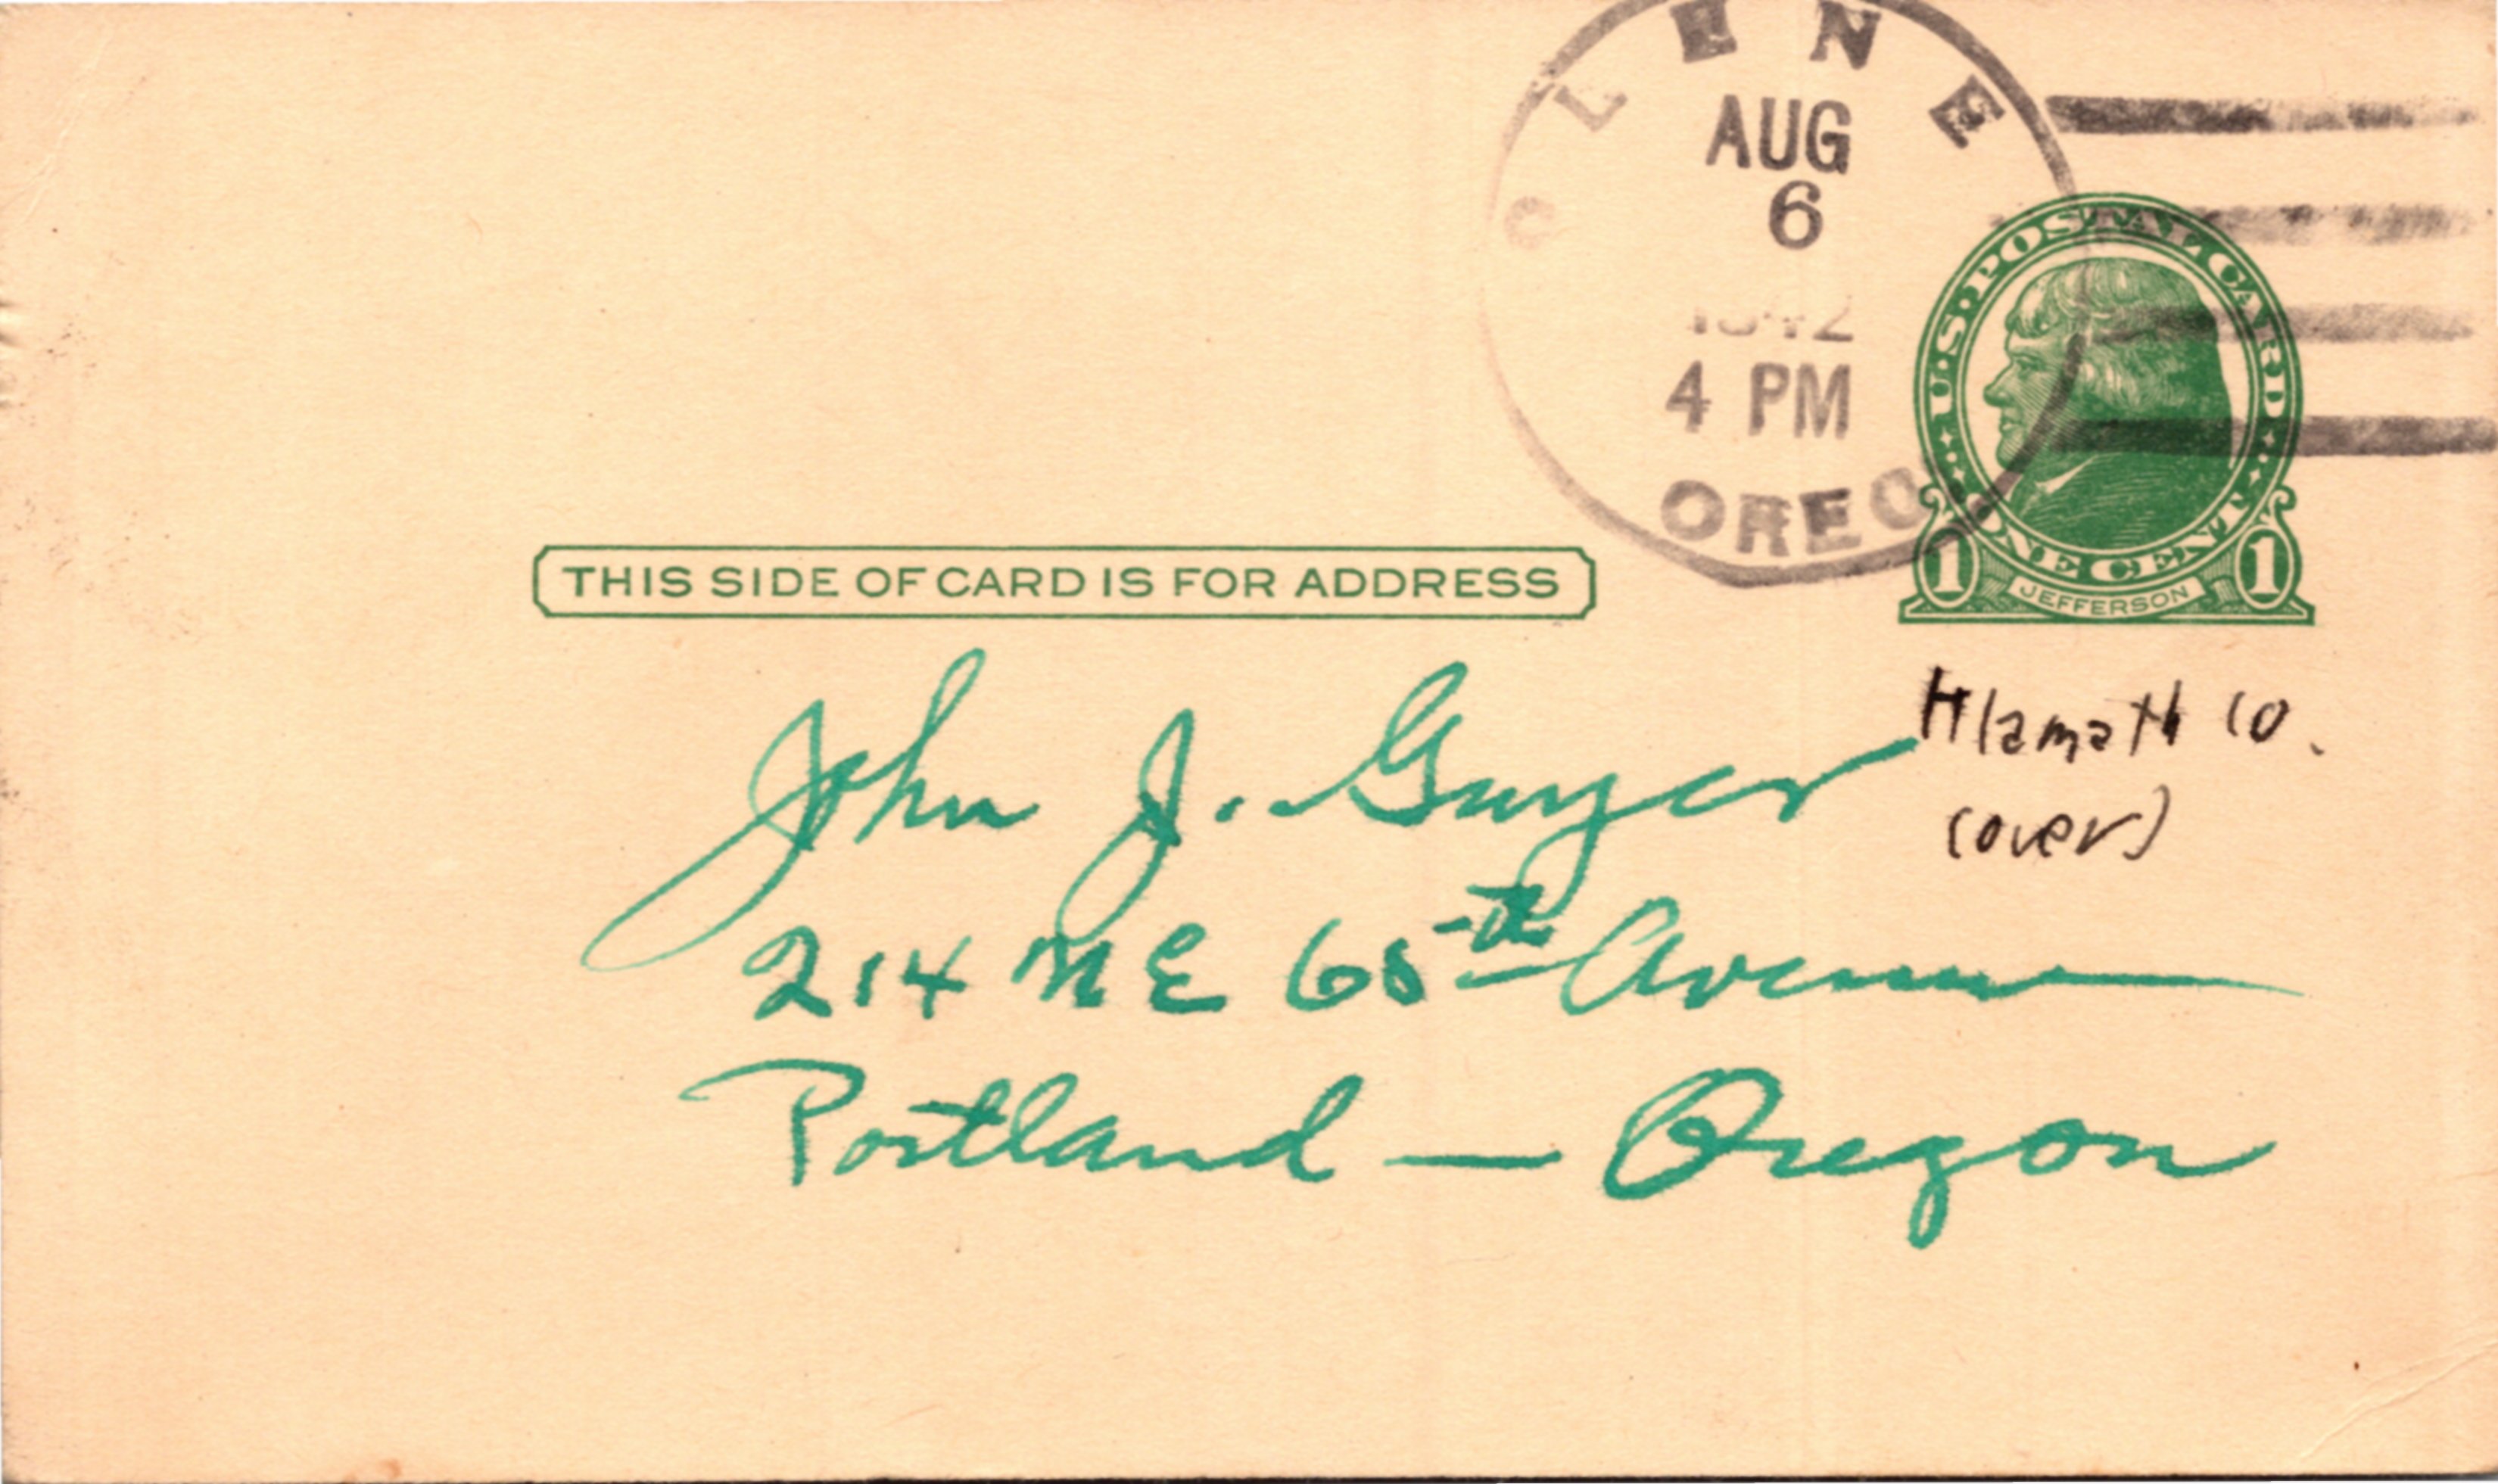 OLENE
AUG
6
1942
4 PM
OREG
U.S. POSTAL CARD
ONE CENT
1 JEFFERSON 1
THIS SIDE OF CARD IS FOR ADDRESS
Klamath Co.
(over)
John J. Guyer
214 NE 65th Avenue
Portland — Oregon